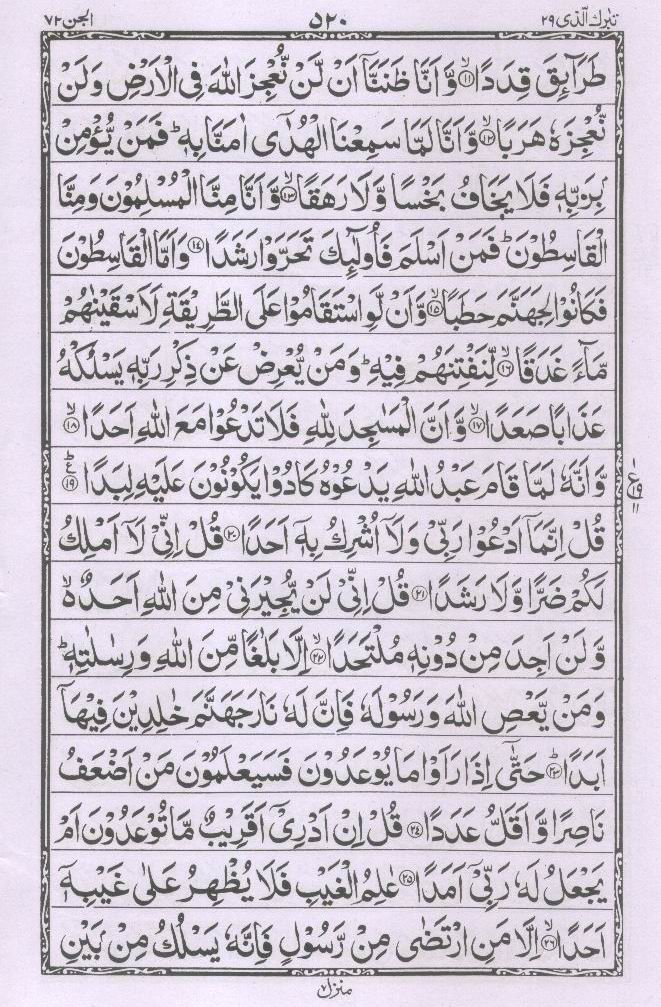 تبٰرك الّذی ٢٩ ٥٢٠ الجن ٧٢
طَرَآئِقَ قِدَدًا ۙ﴿١١﴾ وَّاَنَّا ظَنَنَّآ اَنْ لَّنْ نُّعْجِزَ اللّٰهَ فِی الْاَرْضِ وَلَنْ
نُّعْجِزَهٗ هَرَبًا ۙ﴿١٢﴾ وَّاَنَّا لَمَّا سَمِعْنَا الْهُدٰٓی اٰمَنَّا بِهٖ ؕ فَمَنْ يُّؤْمِنْۢ
بِرَبِّهٖ فَلَا يَخَافُ بَخْسًا وَّلَا رَهَقًا ۙ﴿١٣﴾ وَّاَنَّا مِنَّا الْمُسْلِمُوْنَ وَمِنَّا
الْقَاسِطُوْنَ ؕ فَمَنْ اَسْلَمَ فَاُولٰٓئِكَ تَحَرَّوْا رَشَدًا ﴿١٤﴾ وَاَمَّا الْقَاسِطُوْنَ
فَكَانُوْا لِجَهَنَّمَ حَطَبًا ۙ﴿١٥﴾ وَّاَنْ لَّوِ اسْتَقَامُوْا عَلَی الطَّرِيْقَةِ لَاَسْقَيْنٰهُمْ
مَّآءً غَدَقًا ۙ﴿١٦﴾ لِّنَفْتِنَهُمْ فِيْهِ ؕ وَمَنْ يُّعْرِضْ عَنْ ذِكْرِ رَبِّهٖ يَسْلُكْهُ
عَذَابًا صَعَدًا ۙ﴿١٧﴾ وَّاَنَّ الْمَسٰجِدَ لِلّٰهِ فَلَا تَدْعُوْا مَعَ اللّٰهِ اَحَدًا ۙ﴿١٨﴾
وَّاَنَّهٗ لَمَّا قَامَ عَبْدُ اللّٰهِ يَدْعُوْهُ كَادُوْا يَكُوْنُوْنَ عَلَيْهِ لِبَدًا ؕ﴿١٩﴾ ع
١ ع ١٩ ١١
قُلْ اِنَّمَآ اَدْعُوْا رَبِّیْ وَلَآ اُشْرِكُ بِهٖٓ اَحَدًا ﴿٢٠﴾ قُلْ اِنِّیْ لَآ اَمْلِكُ
لَكُمْ ضَرًّا وَّلَا رَشَدًا ﴿٢١﴾ قُلْ اِنِّیْ لَنْ يُّجِيْرَنِیْ مِنَ اللّٰهِ اَحَدٌ ۙ
وَّلَنْ اَجِدَ مِنْ دُوْنِهٖ مُلْتَحَدًا ۙ﴿٢٢﴾ اِلَّا بَلٰغًا مِّنَ اللّٰهِ وَرِسٰلٰتِهٖ ؕ
وَمَنْ يَّعْصِ اللّٰهَ وَرَسُوْلَهٗ فَاِنَّ لَهٗ نَارَ جَهَنَّمَ خٰلِدِيْنَ فِيْهَآ
اَبَدًا ؕ﴿٢٣﴾ حَتّٰٓی اِذَا رَاَوْا مَا يُوْعَدُوْنَ فَسَيَعْلَمُوْنَ مَنْ اَضْعَفُ
نَاصِرًا وَّاَقَلُّ عَدَدًا ﴿٢٤﴾ قُلْ اِنْ اَدْرِیْٓ اَقَرِيْبٌ مَّا تُوْعَدُوْنَ اَمْ
يَجْعَلُ لَهٗ رَبِّیْٓ اَمَدًا ﴿٢٥﴾ عٰلِمُ الْغَيْبِ فَلَا يُظْهِرُ عَلٰی غَيْبِهٖٓ
اَحَدًا ۙ﴿٢٦﴾ اِلَّا مَنِ ارْتَضٰی مِنْ رَّسُوْلٍ فَاِنَّهٗ يَسْلُكُ مِنْۢ بَيْنِ
منزل ٧